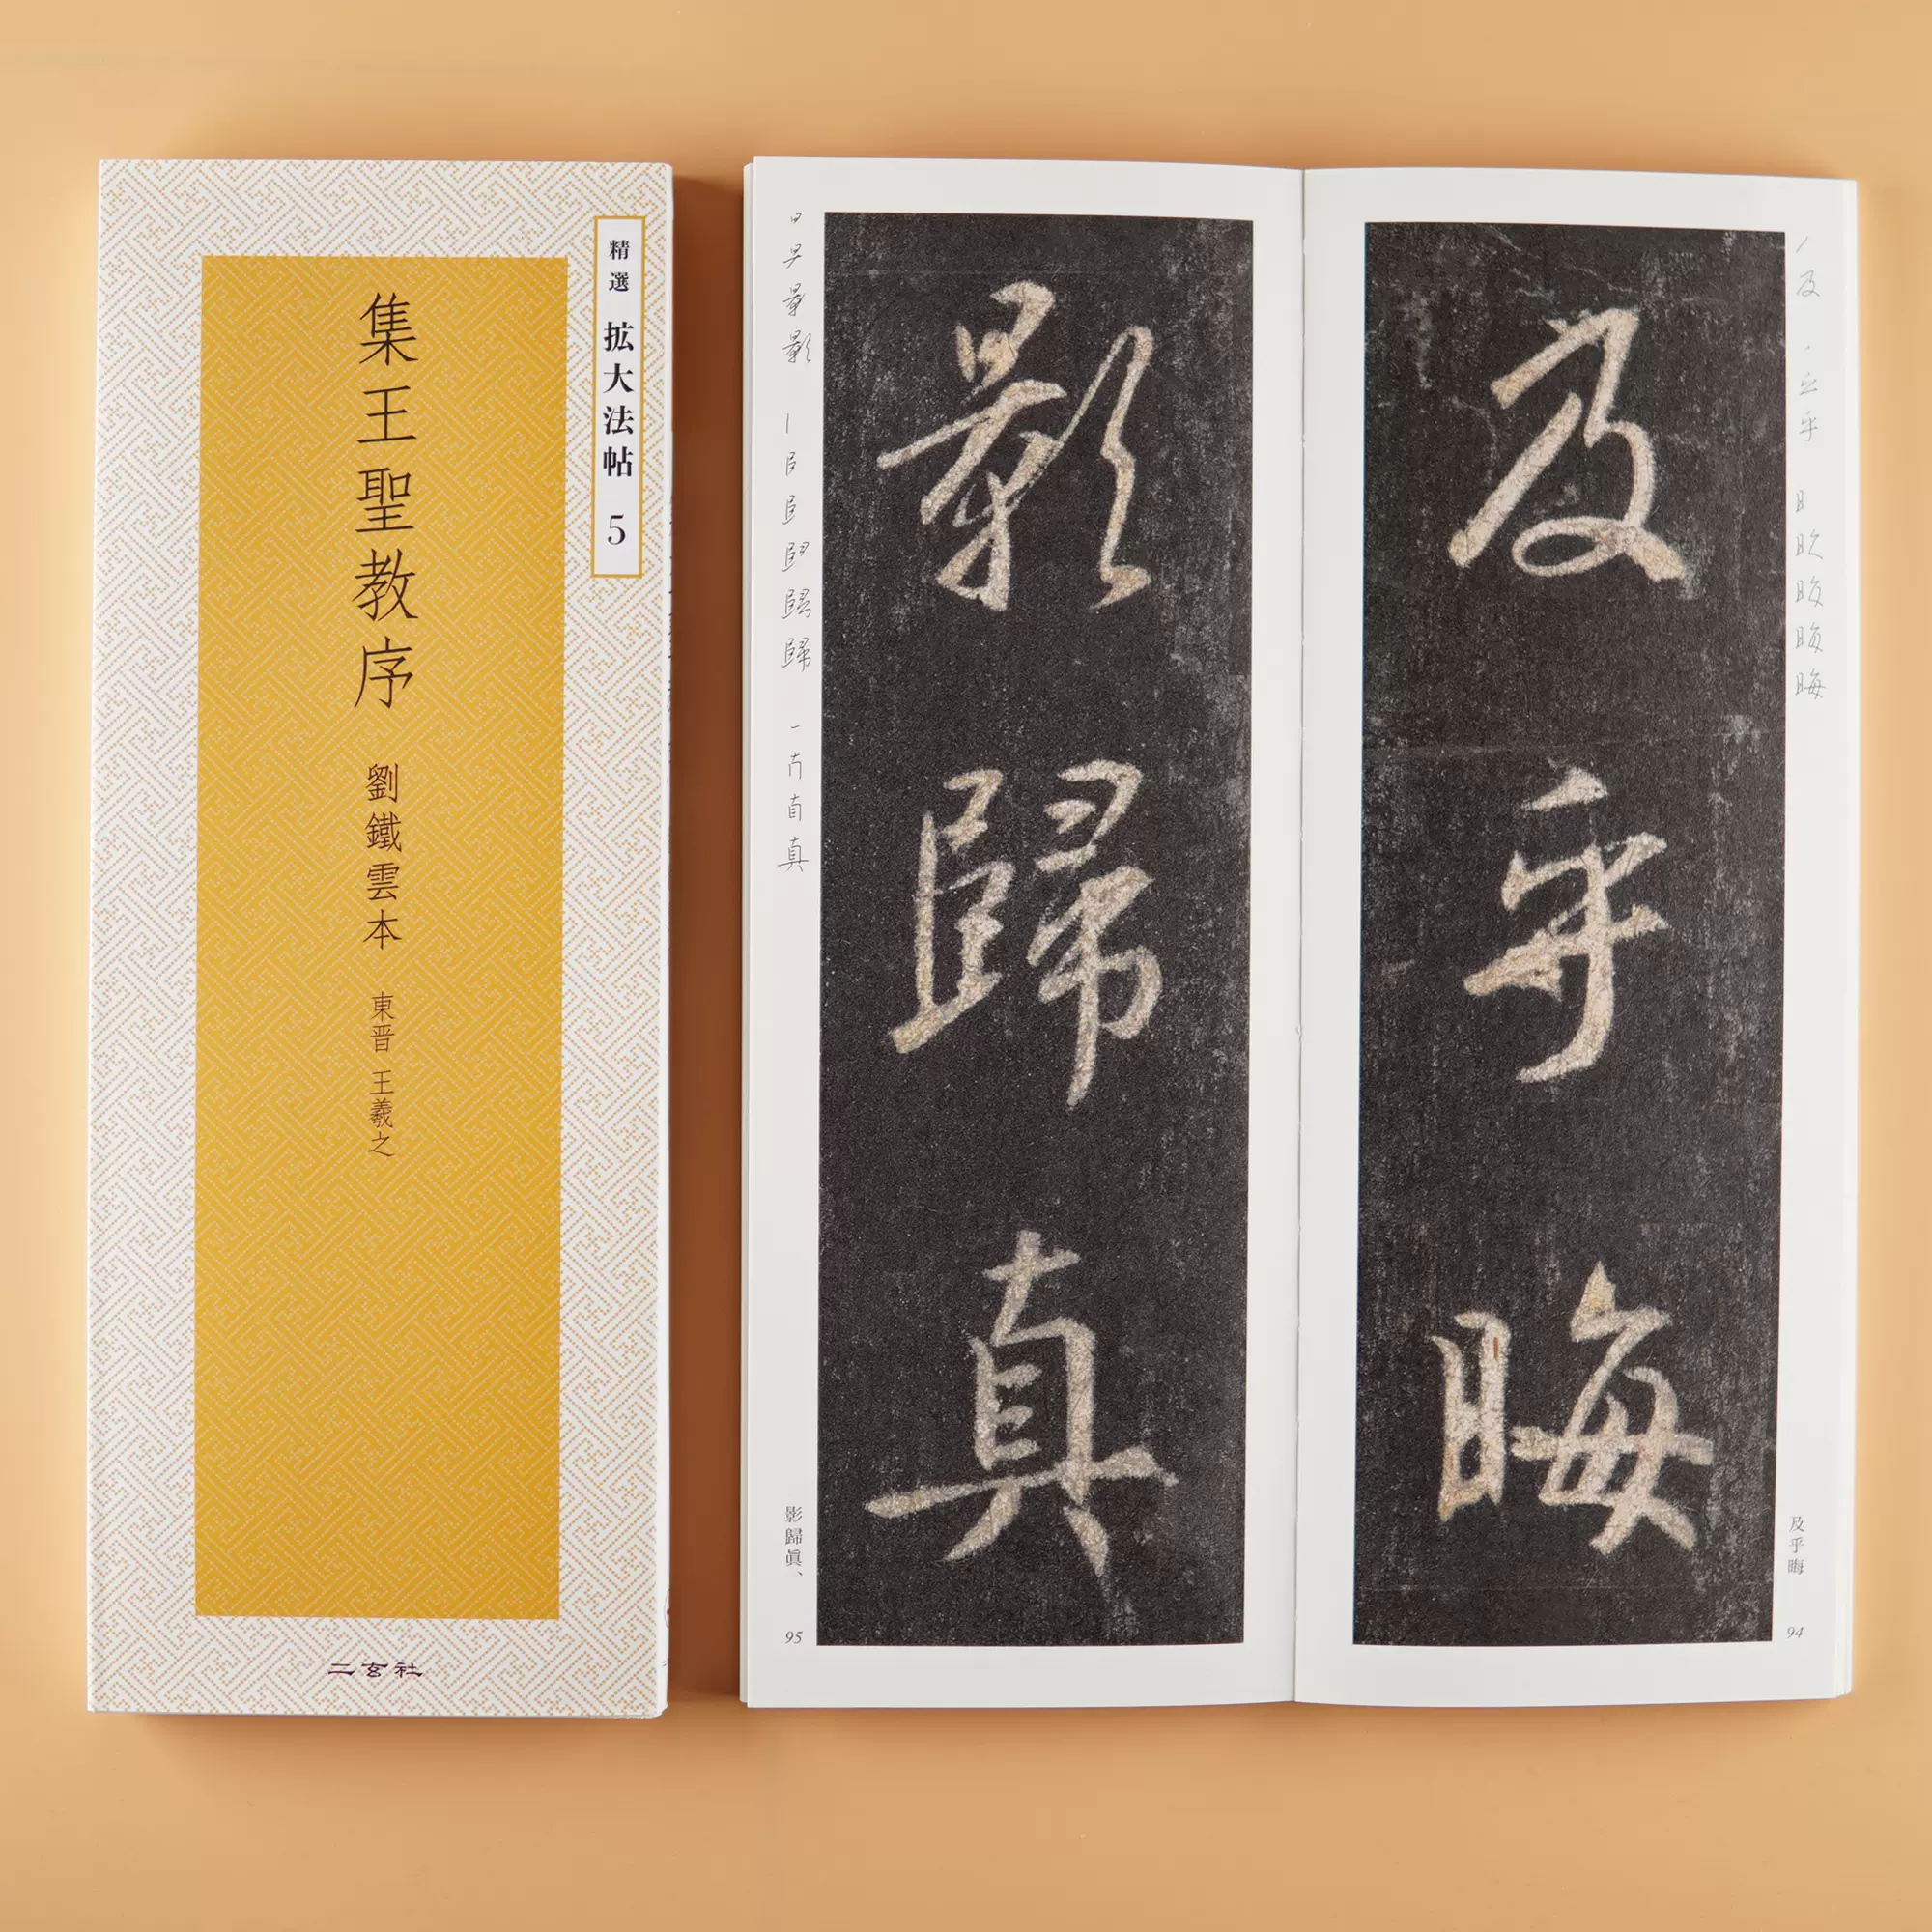 精選 拡大法帖 5
集王聖教序 劉鐵雲本 東晋 王羲之
二玄社
及乎晦
及乎晦
94
影歸真
影歸眞、
95